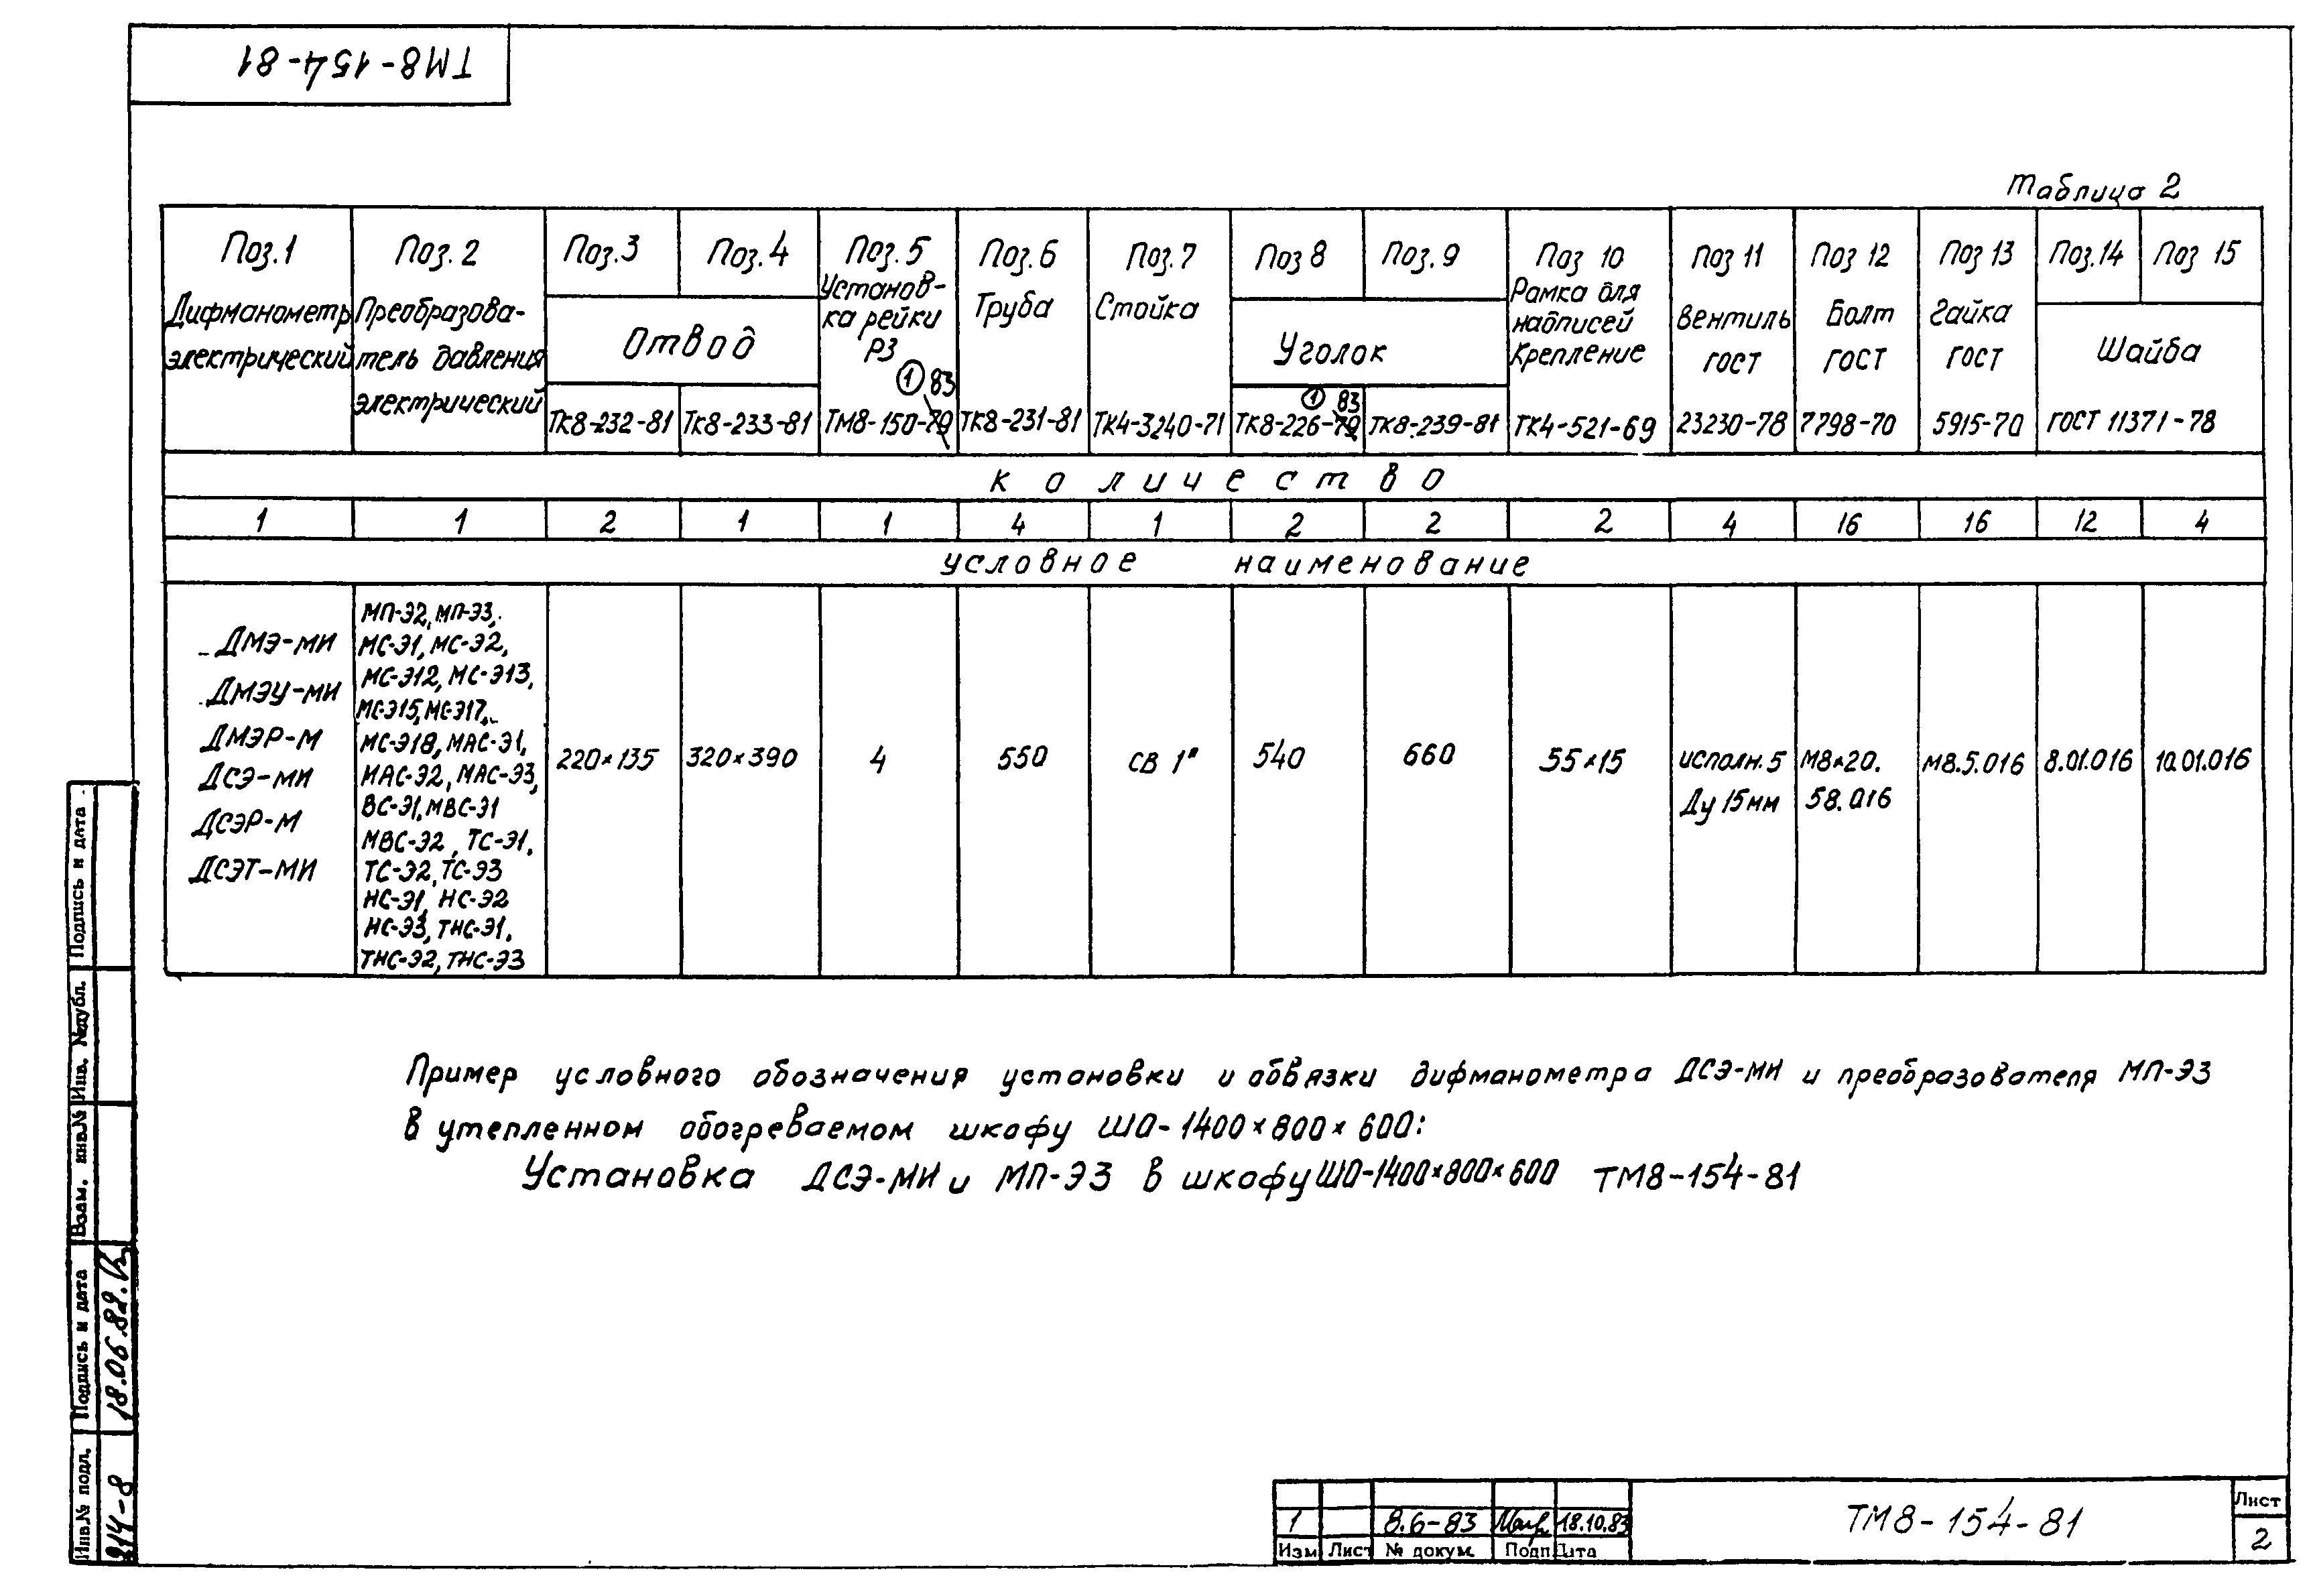 ТМ8-154-81
Таблица 2
Поз.1 Поз. 2 Поз.3 Поз.4 Поз.5 Поз.6 Поз.7 Поз 8 Поз.9 Поз 10 Поз 11 Поз 12 Поз 13 Поз.14 Поз 15
Дифманометр
электрический
Преобразова-
тель давления
электрический
Отвод
ТК8-232-81 ТК8-233-81
Установ-
ка рейки
РЗ
① 83
ТМ8-150-79
Труба
ТК8-231-81
Стойка
ТК4-3240-71
Уголок
① 83
ТК8-226-79 ТК8-239-81
Рамка для
надписей
Крепление
ТК4-521-69
Вентиль
ГОСТ
23230-78
Болт
ГОСТ
7798-70
Гайка
ГОСТ
5915-70
Шайба
ГОСТ 11371-78
количество
1 1 2 1 1 4 1 2 2 2 4 16 16 12 4
условное наименование
ДМЭ-МИ
ДМЭУ-МИ
ДМЭР-М
ДСЭ-МИ
ДСЭР-М
ДСЭТ-МИ
МП-Э2, МП-Э3,
МС-Э1, МС-Э2,
МС-Э12, МС-Э13,
МС-Э15, МС-Э17,
МС-Э18, МАС-Э1,
МАС-Э2, МАС-Э3,
ВС-Э1, МВС-Э1
МВС-Э2, ТС-Э1,
ТС-Э2, ТС-Э3
НС-Э1, НС-Э2
НС-Э3, ТНС-Э1,
ТНС-Э2, ТНС-Э3
220×135
320×390
4
550
СВ 1"
540
660
55×15
исполн. 5
Ду 15мм
М8×20.
58.016
М8.5.016
8.01.016
10.01.016
Пример условного обозначения установки и обвязки дифманометра ДСЭ-МИ и преобразователя МП-Э3
в утепленном обогреваемом шкафу ШО-1400×800×600:
Установка ДСЭ-МИ и МП-Э3 в шкафу ШО-1400×800×600 ТМ8-154-81
Подпись и дата
Инв. №дубл.
Взам. инв№
Подпись и дата
18.06.82.
Инв№ подл.
214-8
1 8.6-83 18.10.83
Изм Лист № докум. Подп. Дата
ТМ8-154-81
Лист
2